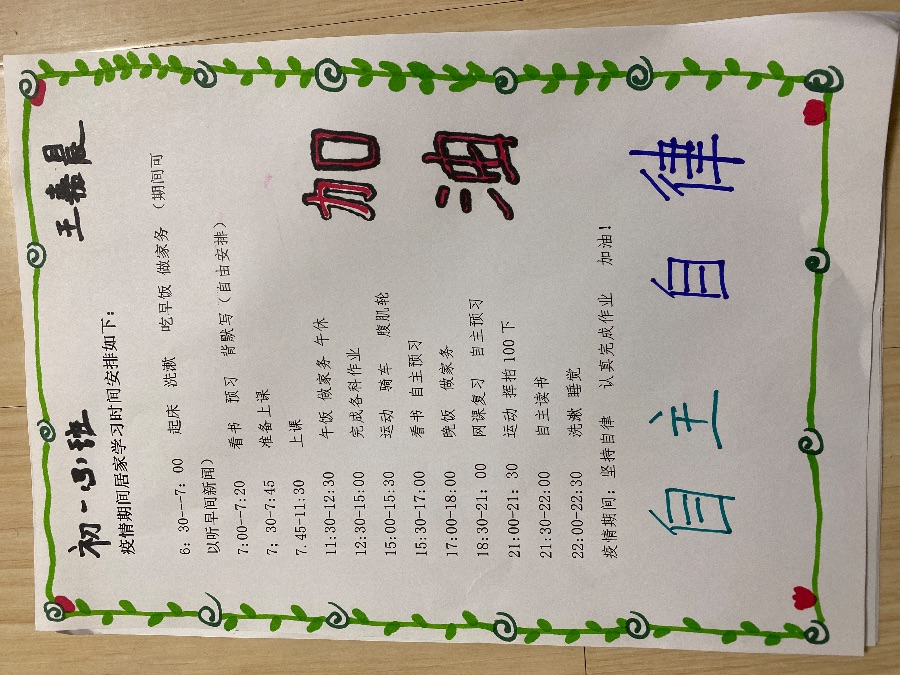 初一(3)班 王嘉晨
疫情期间居家学习时间安排如下:
6: 30--7: 00 起床 洗漱 吃早饭 做家务 (期间可
以听早间新闻)
7:00-7:20 看书 预习 背默写(自由安排)
7; 30-7:45 准备上课
7. 45-11:30 上课
11:30-12:30 午饭 做家务 午休
12:30-15:00 完成各科作业
15:00-15:30 运动 骑车 腹肌轮
15:30-17:00 看书 自主预习
17:00-18:00 晚饭 做家务
18:30-21: 00 网课复习 自主预习
21:00-21: 30 运动 挥拍 100 下
21:30-22:00 自主读书
22:00-22:30 洗漱 睡觉
疫情期间: 坚持自律 认真完成作业 加油!
加油
自主 自律